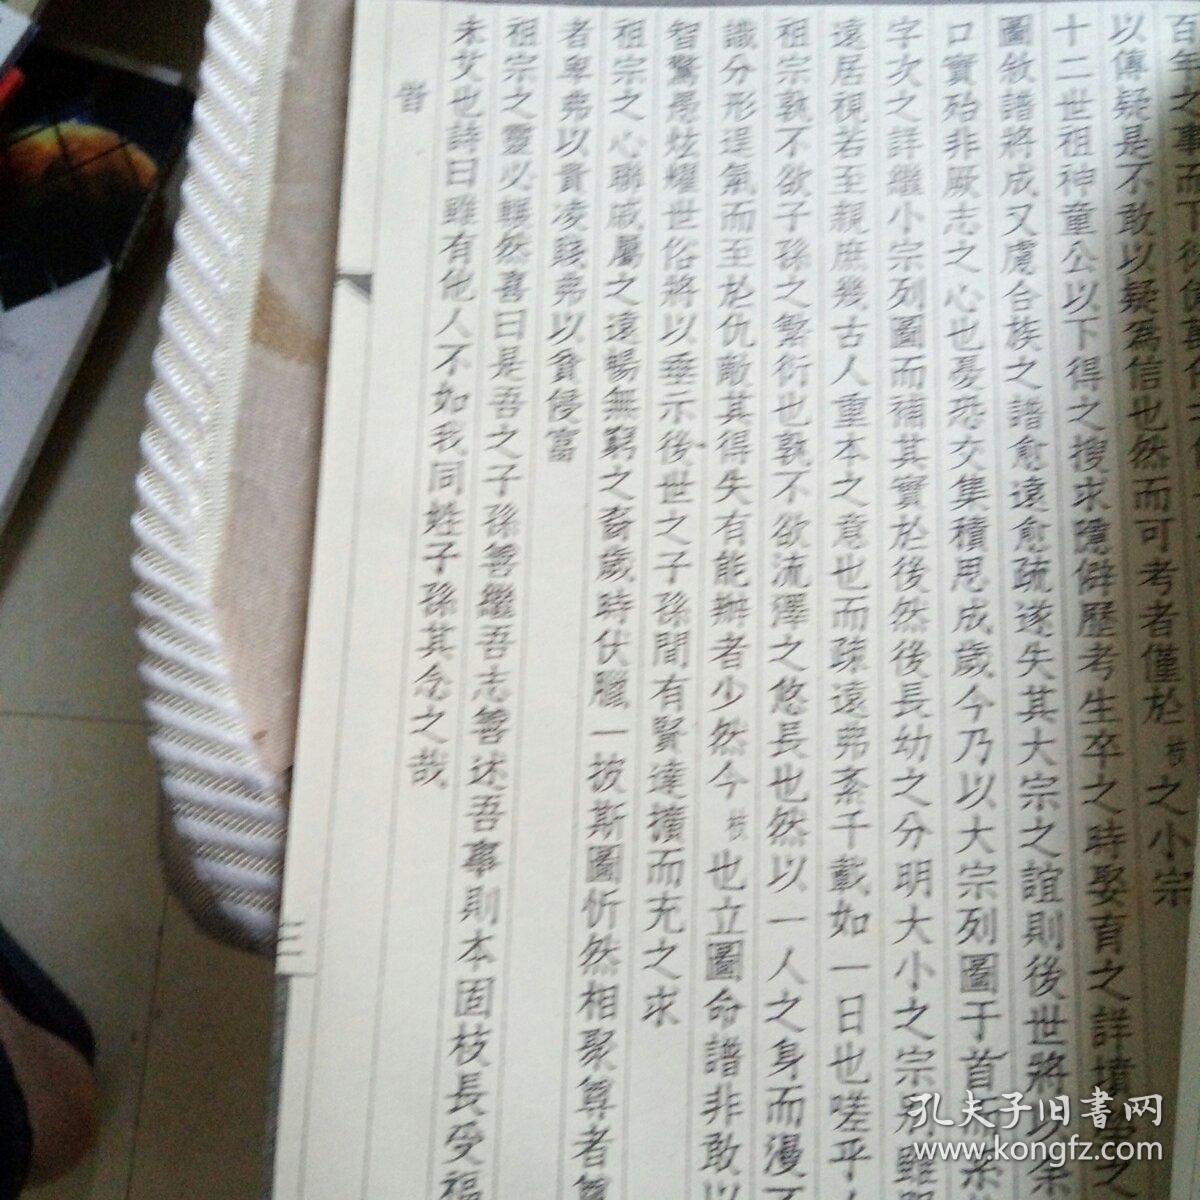 百年之事而下後
以傳疑是不敢以疑為信也然而可考者僅於枝之小宗
十二世祖神童公以下得之搜求隱僻歷考生卒之時娶育之詳墳
圖敘譜將成又慮合族之譜愈遠愈疏遂失其大宗之誼則後世將以余
口實殆非厥志之心也憂恐交集積思成歲今乃以大宗列圖于首而系
字次之詳繼小宗列圖而補其實於後然後長幼之分明大小之宗別雖
遠居視若至親庶幾古人重本之意也而疎遠弗紊千載如一日也嗟乎人
祖宗孰不欲子孫之繁衍也孰不欲流澤之悠長也然以一人之身而漫不
識分形逞氣而至於仇敵其得失有能辦者少然今枝也立圖命譜非敢以
智驚愚炫耀世俗將以垂示後世之子孫間有賢達擴而充之求
祖宗之心聯戚屬之遠暢無窮之裔歲時伏臘一披斯圖忻然相聚尊者尊
者卑弗以貴凌賤弗以貧侵富
祖宗之靈必輾然喜曰是吾之子孫善繼吾志善述吾事則本固枝長受福
未艾也詩曰雖有他人不如我同姓子孫其念之哉
昔
三
孔夫子旧書网
www.kongfz.com